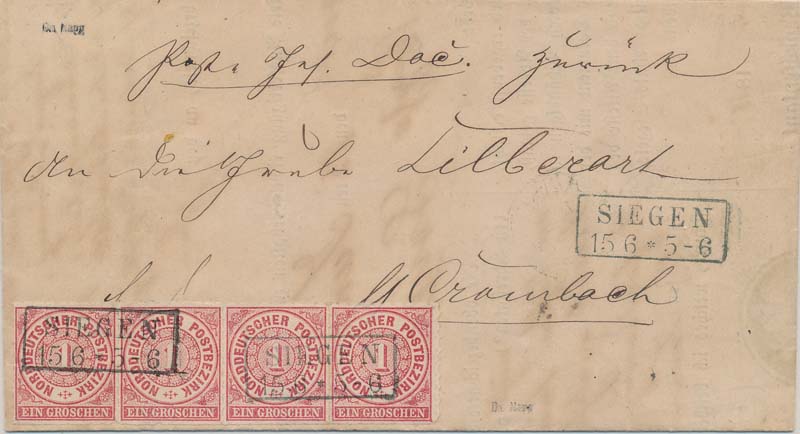 Post. Ins. Doc. zurück
An die Grube Silberart
Crombach
SIEGEN
15 6 * 5-6
SIEGEN
15 6 * 5-6
SIEGEN
15 6 * 5-6
NORDDEUTSCHER POSTBEZIRK
1
EIN GROSCHEN
NORDDEUTSCHER POSTBEZIRK
1
EIN GROSCHEN
NORDDEUTSCHER POSTBEZIRK
1
EIN GROSCHEN
NORDDEUTSCHER POSTBEZIRK
1
EIN GROSCHEN